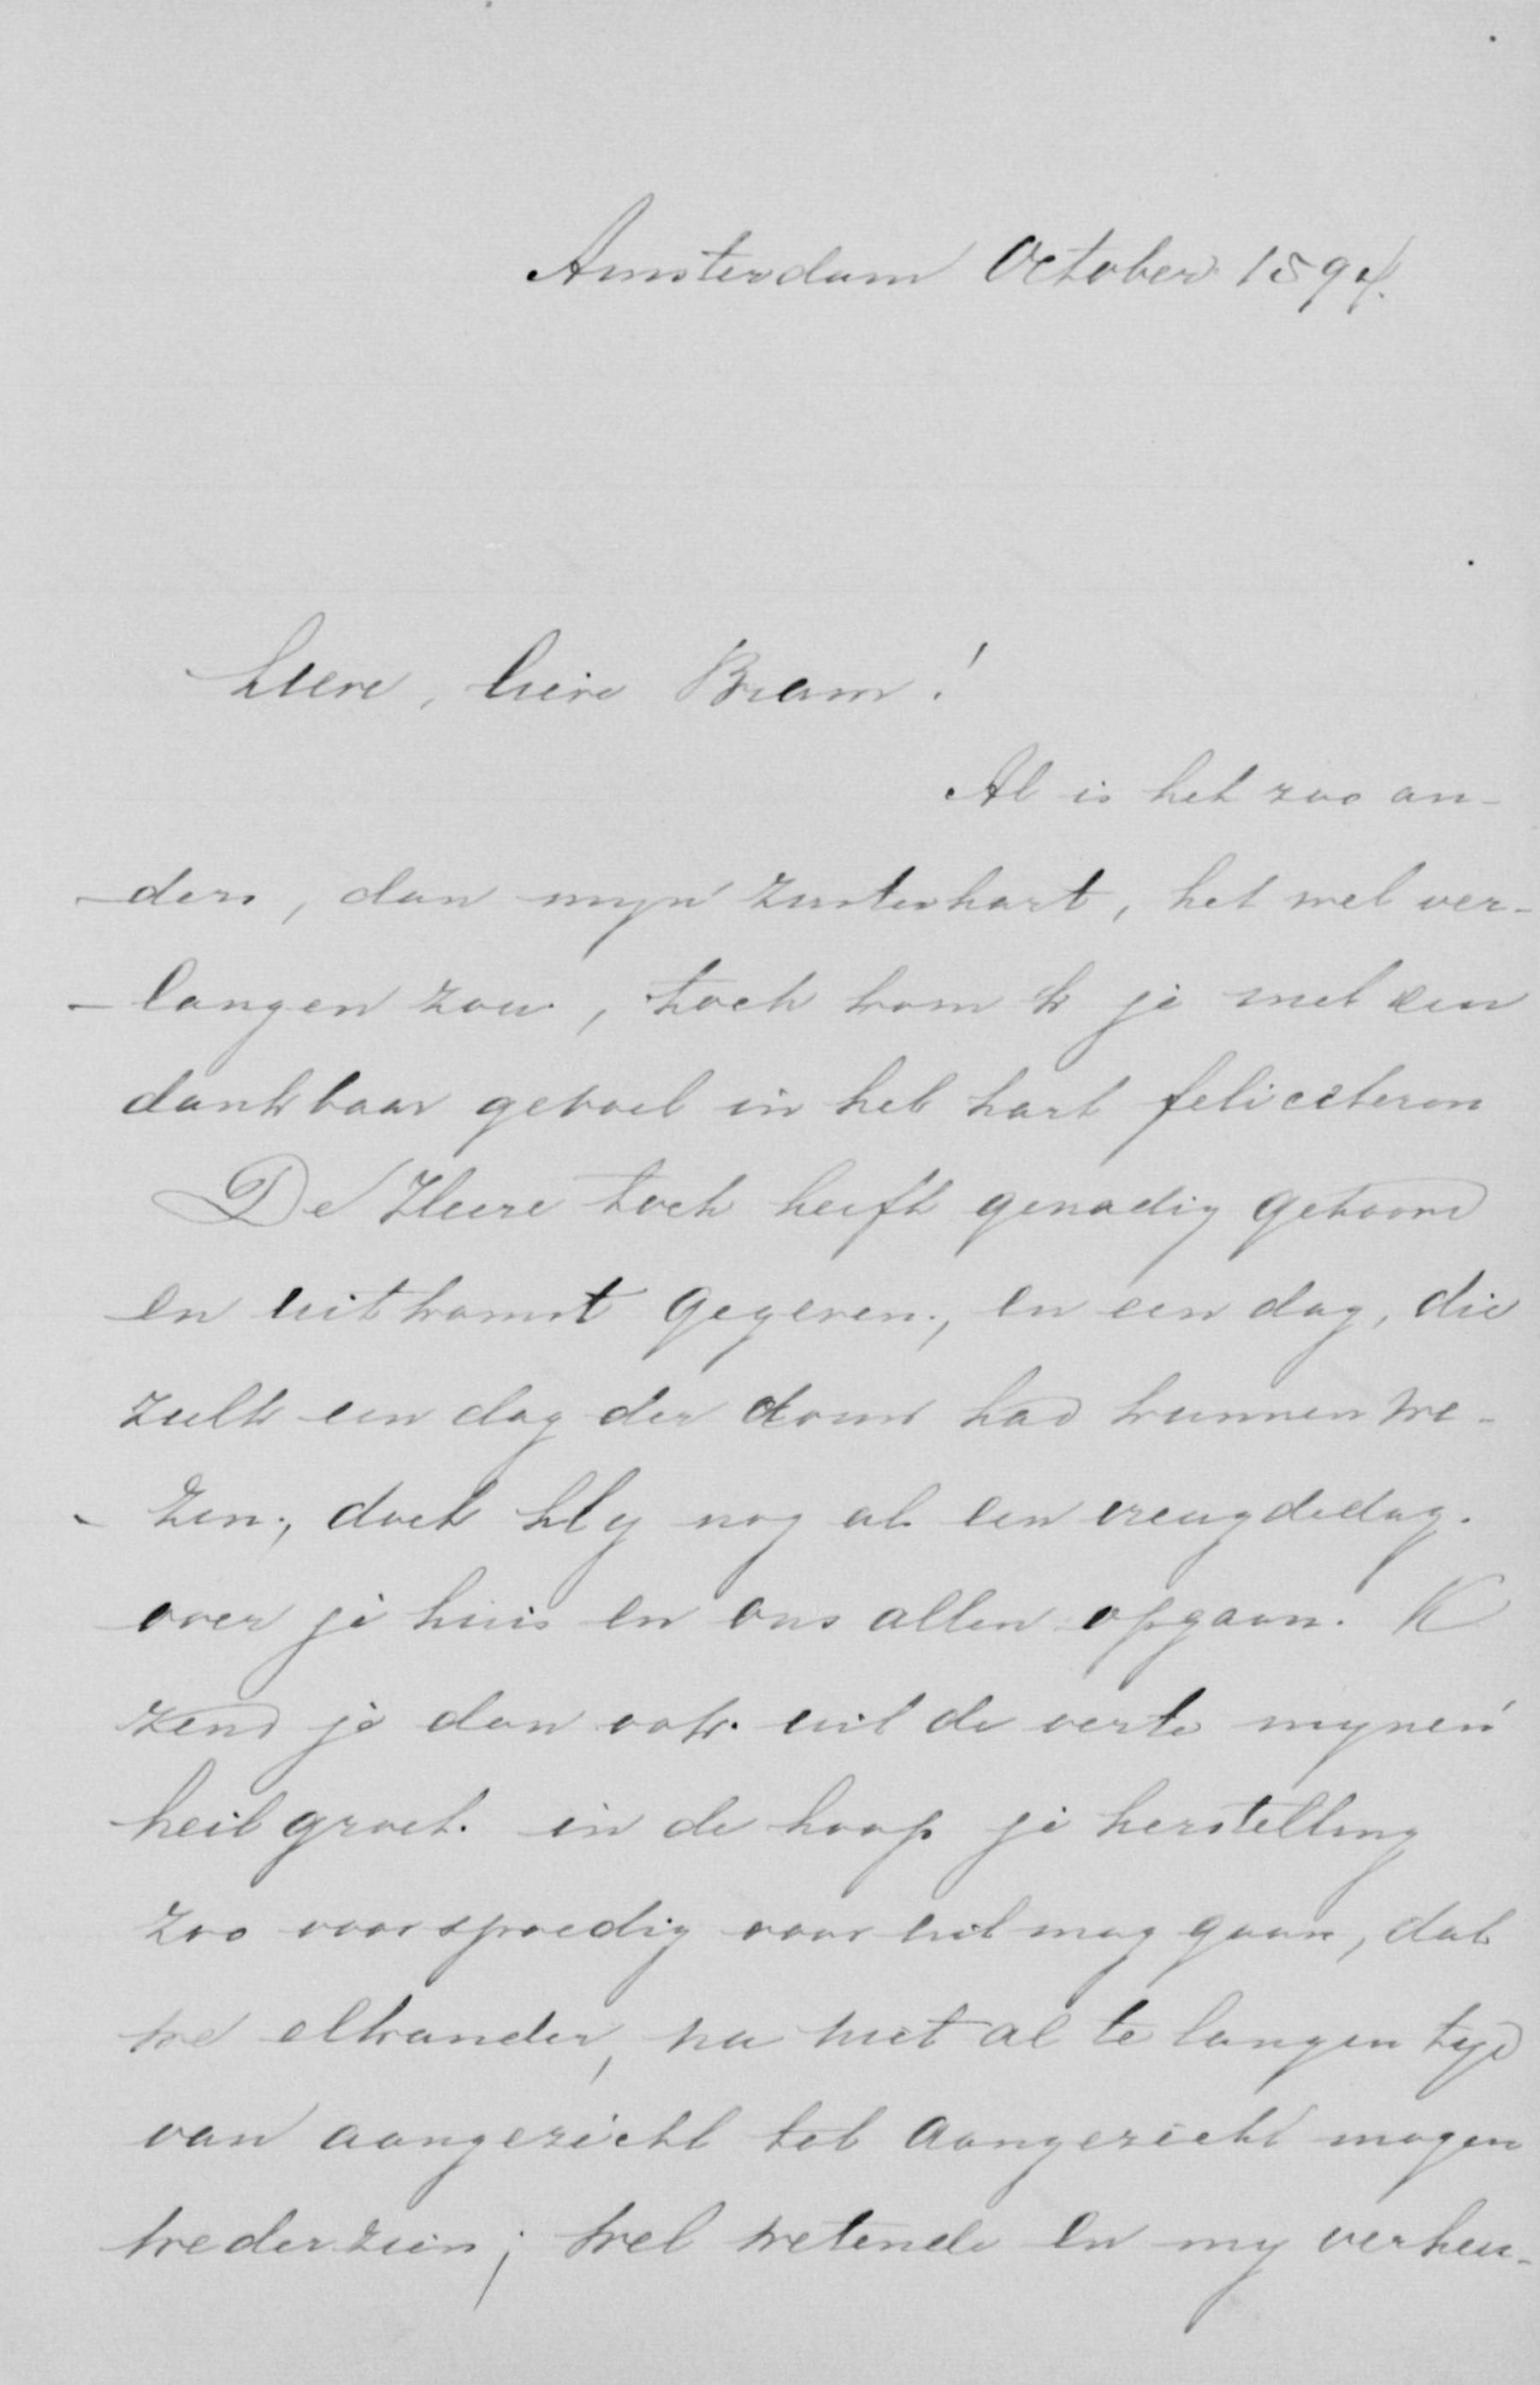 Amsterdam October 1894.
Lieve, lieve Bram!
Al is het zoo an-
-ders, dan myn zusterhart, het wel ver-
-langen zou, toch kom ik je met een
dankbaar gevoel in het hart feliciteren
De Heere toch heeft genadig gehoord
en uitkomst gegeven, en een dag, die
zulk een dag der rouw had kunnen we-
-zen, doet Hy nog als een vreugdedag.
over je huis en ons allen opgaan. K
zend je dan ook uit de verte mynen
heilgroet. in de hoop je herstelling
zoo voorspoedig vooruit mag gaan, dat
we elkander, na niet al te langen tyd
van aangezicht tot aangezicht mogen
wederzien; wel wetende en my verheu-